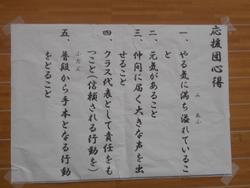 応援団心得
一、やる気に満ち溢れているこ
と
二、元気があること
三、仲間に届く大きな声を出
せること
四、クラス代表として責任をも
つこと(信頼される行動を)
五、普段から手本となる行動
をとること